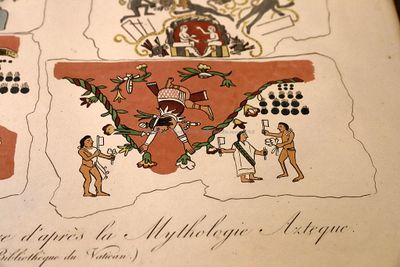 d'après la Mythologie Azteque.
Bibliothèque du Vatican.)